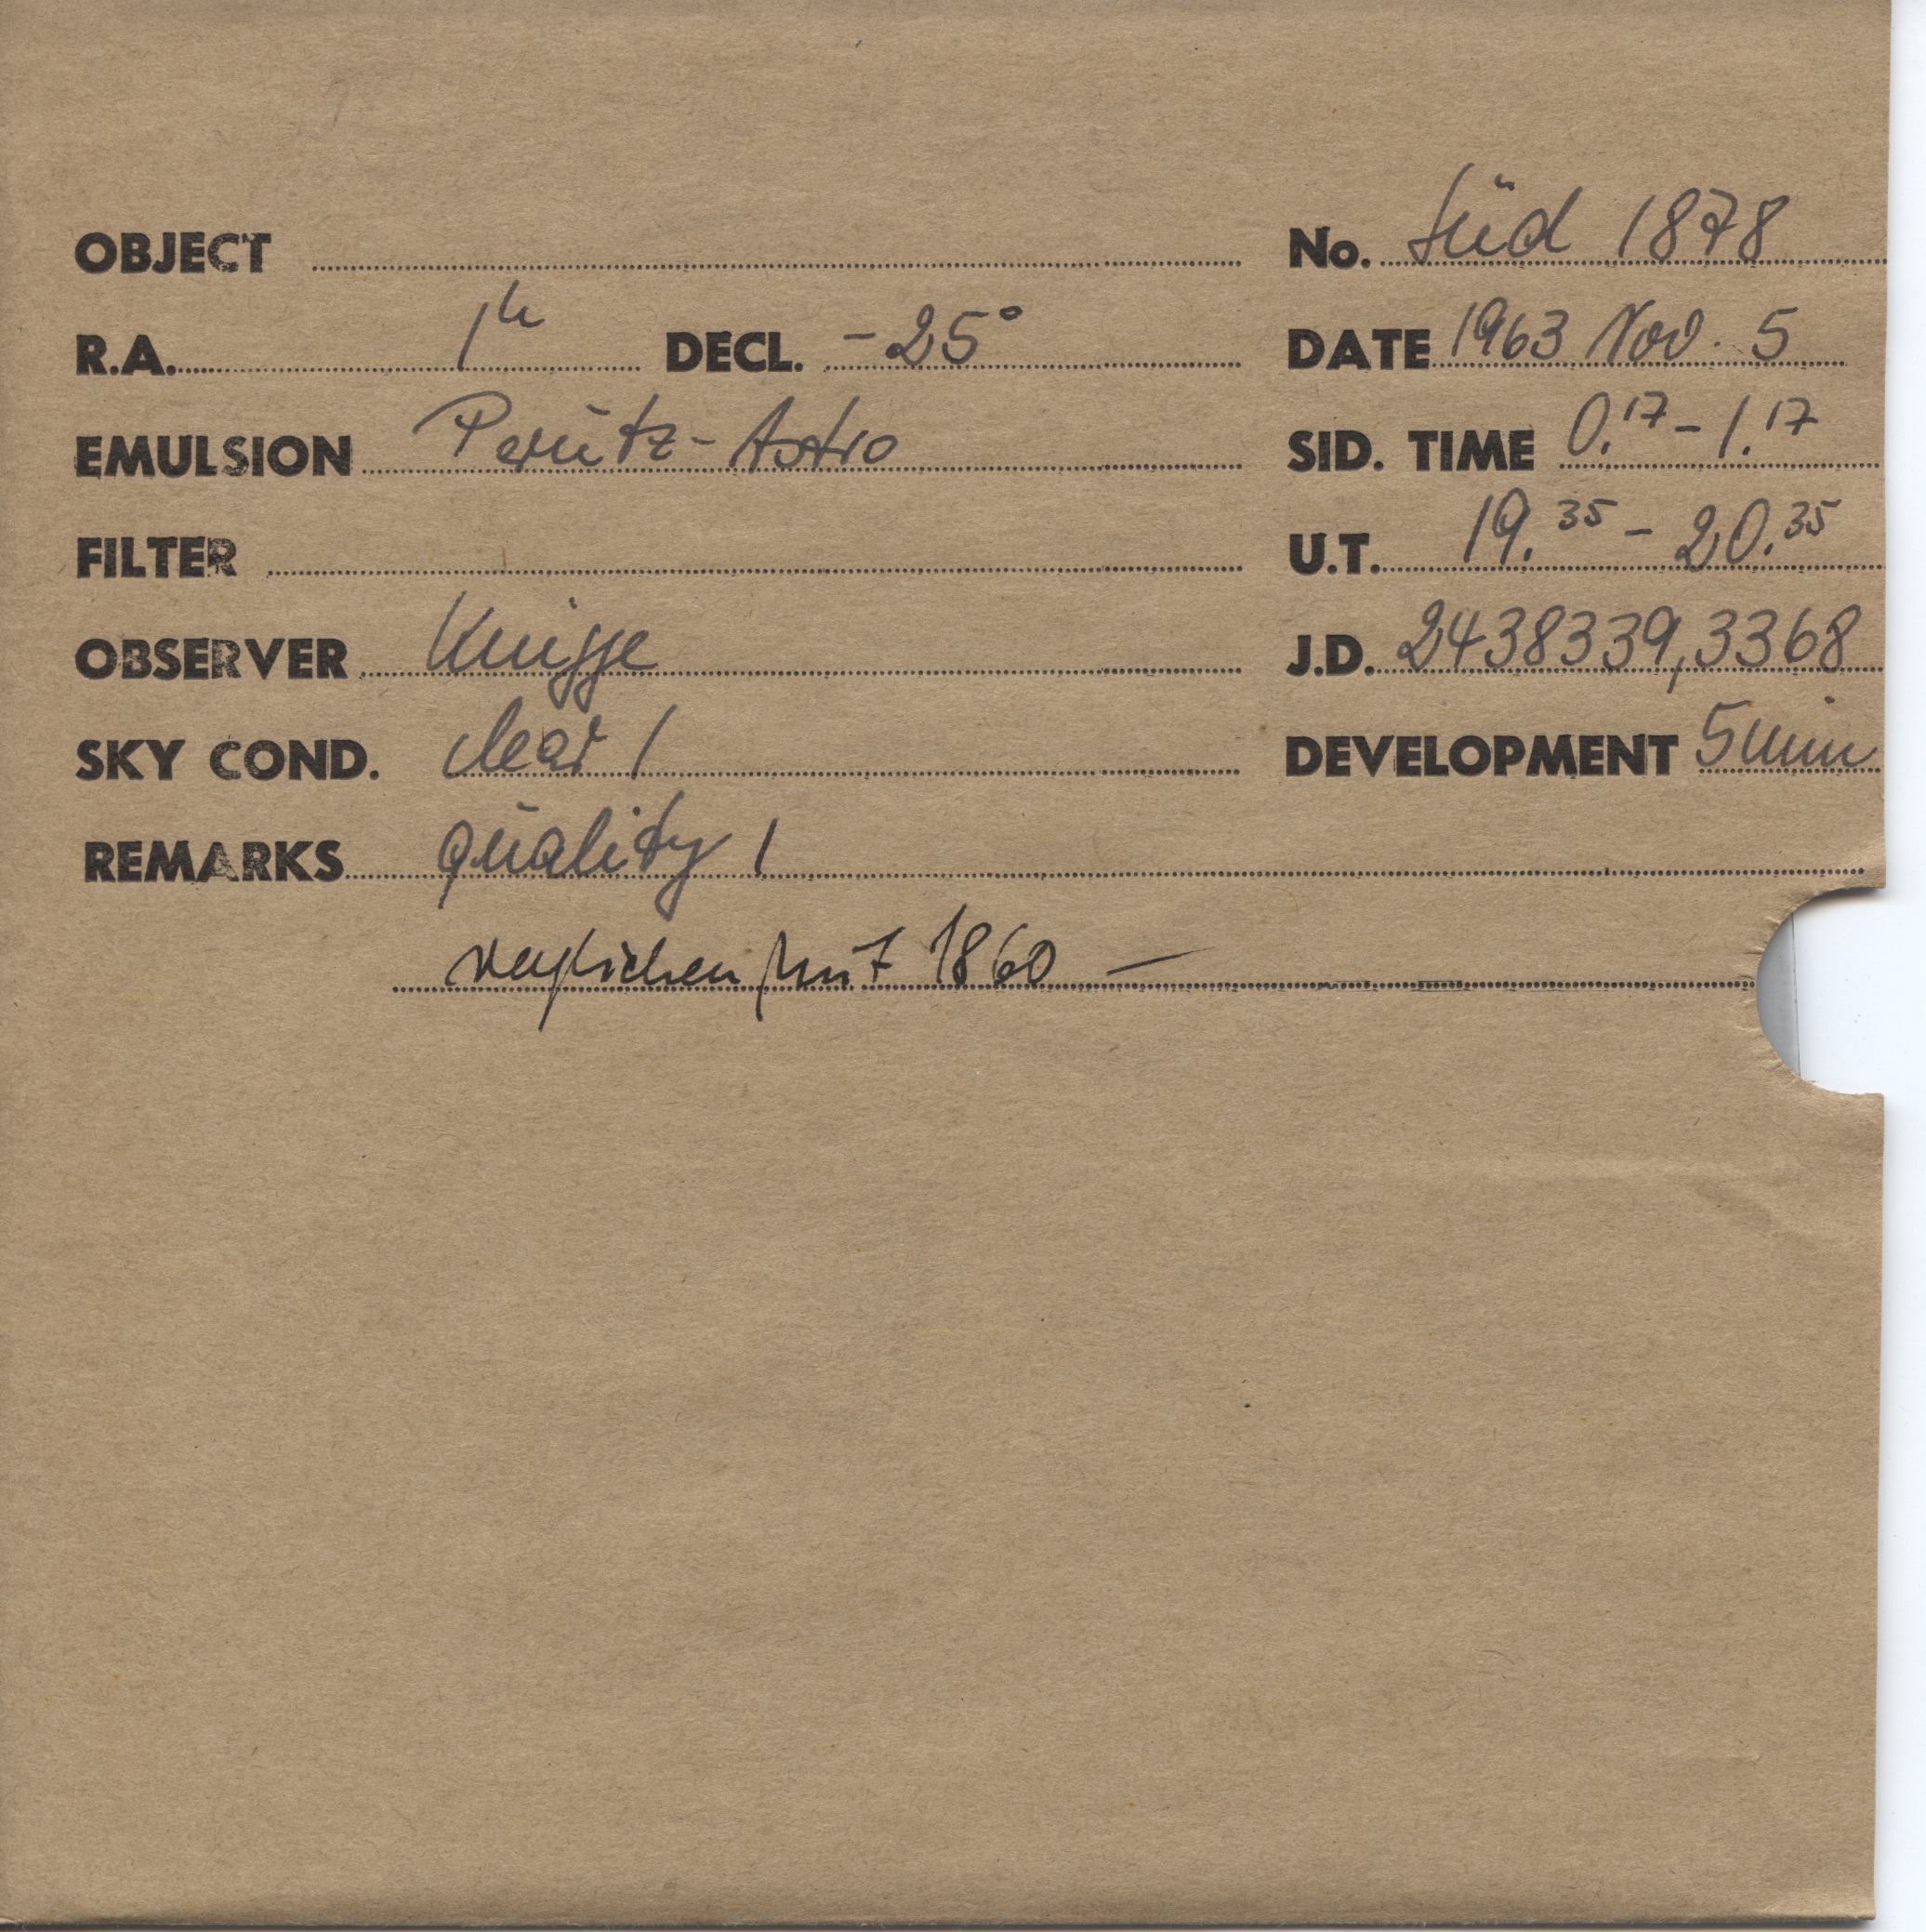 OBJECT No. Süd 1878
R.A. 1h DECL. -25° DATE 1963 Nov. 5
EMULSION Perutz-Astro SID. TIME 0.17 - 1.17
FILTER U.T. 19.35 - 20.35
OBSERVER Knigge J.D. 2438339,3368
SKY COND. clear 1 DEVELOPMENT 5 min
REMARKS quality 1
verglichen mit 1860 —